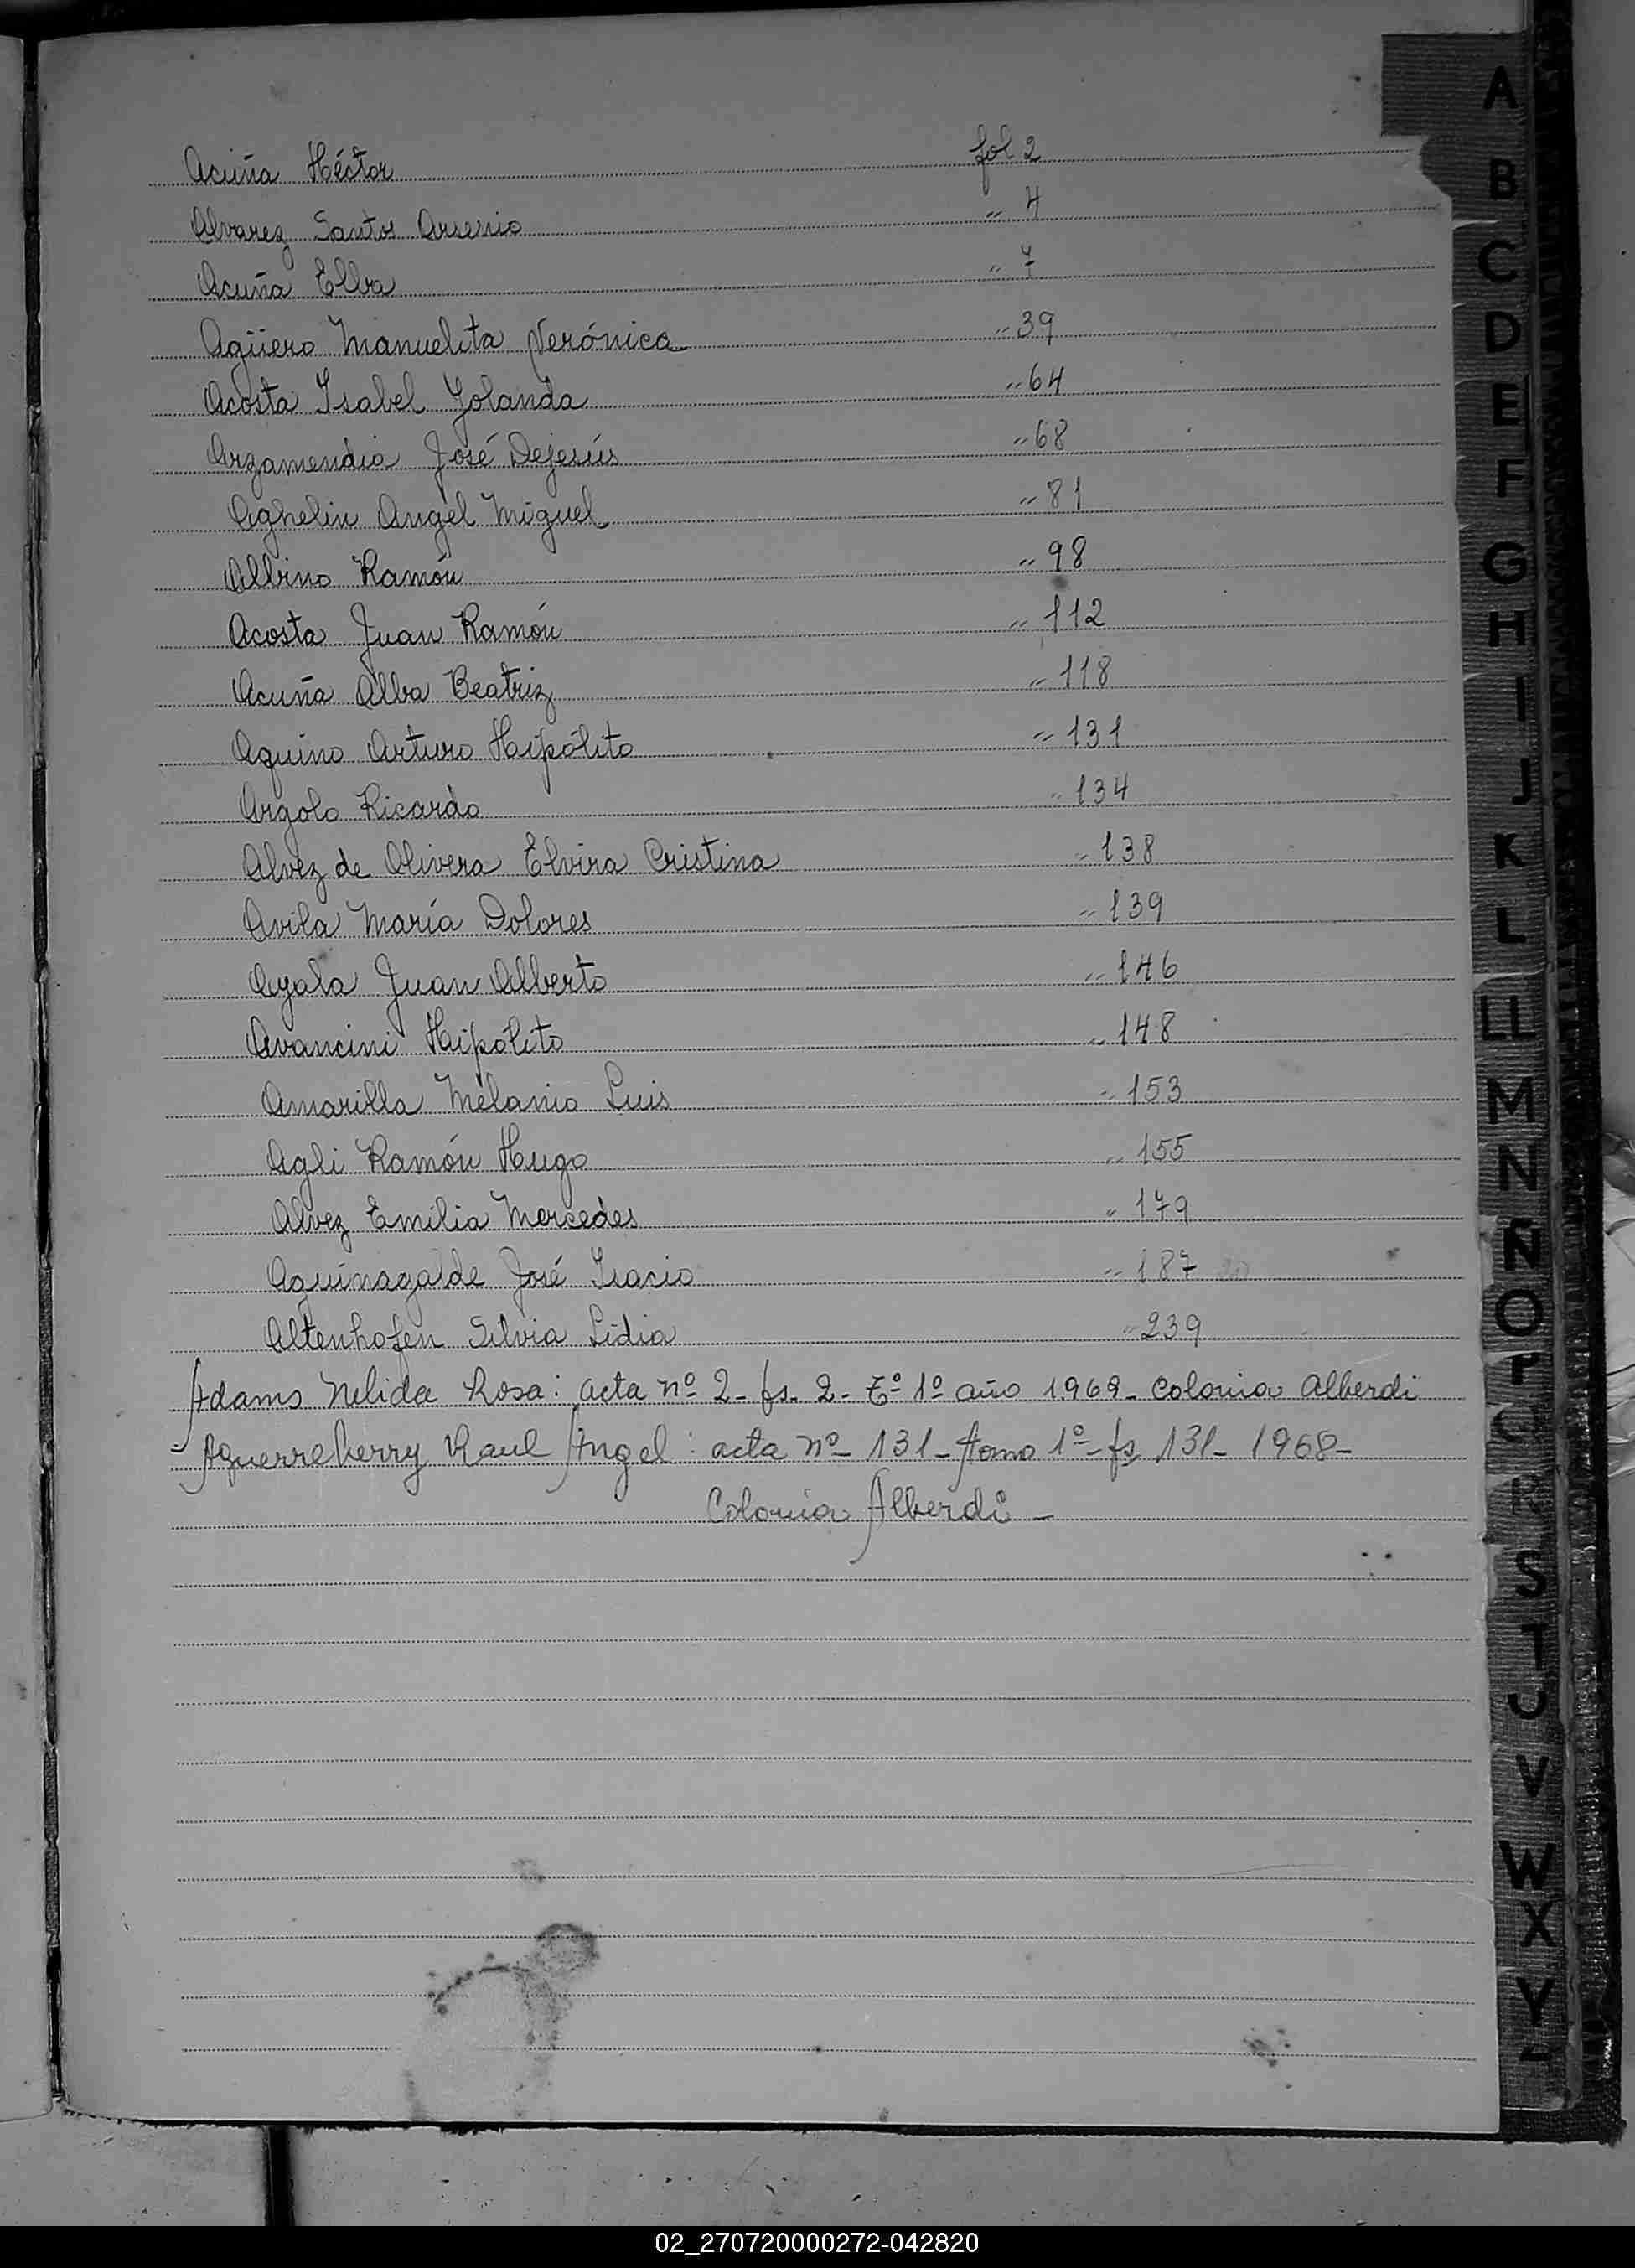 Acuña Héctor fol 2
Alvarez Santos Arsenio " 4
Acuña Elba " 7
Agüero Manuelita Verónica " 39
Acosta Isabel Yolanda " 64
Arzamendia José Dejesús " 68
Aghelin Angel Miguel " 81
Albino Ramón " 98
Acosta Juan Ramón " 112
Acuña Alba Beatriz " 118
Aquino Arturo Haipólito " 131
Argolo Ricardo " 134
Alvez de Olivera Elvira Cristina " 138
Avila María Dolores " 139
Ayala Juan Alberto " 146
Avancini Haipólito " 148
Amarilla Melanio Luis " 153
Agli Ramón Hugo " 155
Alvez Emilia Mercedes " 179
Aguinagalde José Isacio " 187
Altenhofen Silvia Lidia " 239
Adams Nelida Rosa: acta nº 2- fs. 2- Tº 1º año 1.968- Colonia Alberdi
- Aguerreberry Raul Angel: acta nº- 131- tomo 1º- fs 131- 1968-
Colonia Alberdi -
A
B
C
D
E
F
G
H
I
J
K
L
LL
M
N
Ñ
O
P
Q
R
S
T
U
V
W
X
Y
02_270720000272-042820